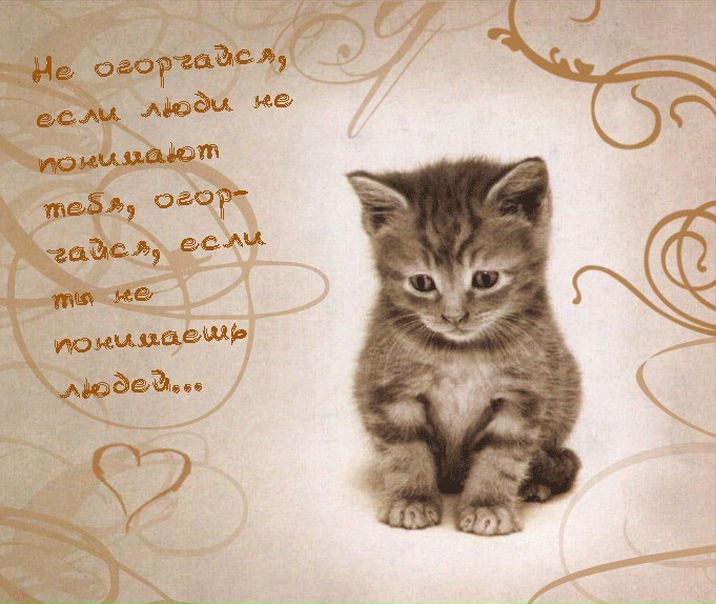 Не огорчайся,
если люди не
понимают
тебя, огор-
чайся, если
ты не
понимаешь
людей...